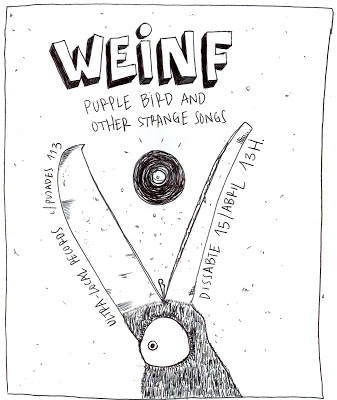 WEiNF
PURPLE BiRD AND
OTHER STRANGE SONGS
ULTRA-LOCAL RECORDS c/PUJADES 113
DISSABTE 15/ABRIL 13H.